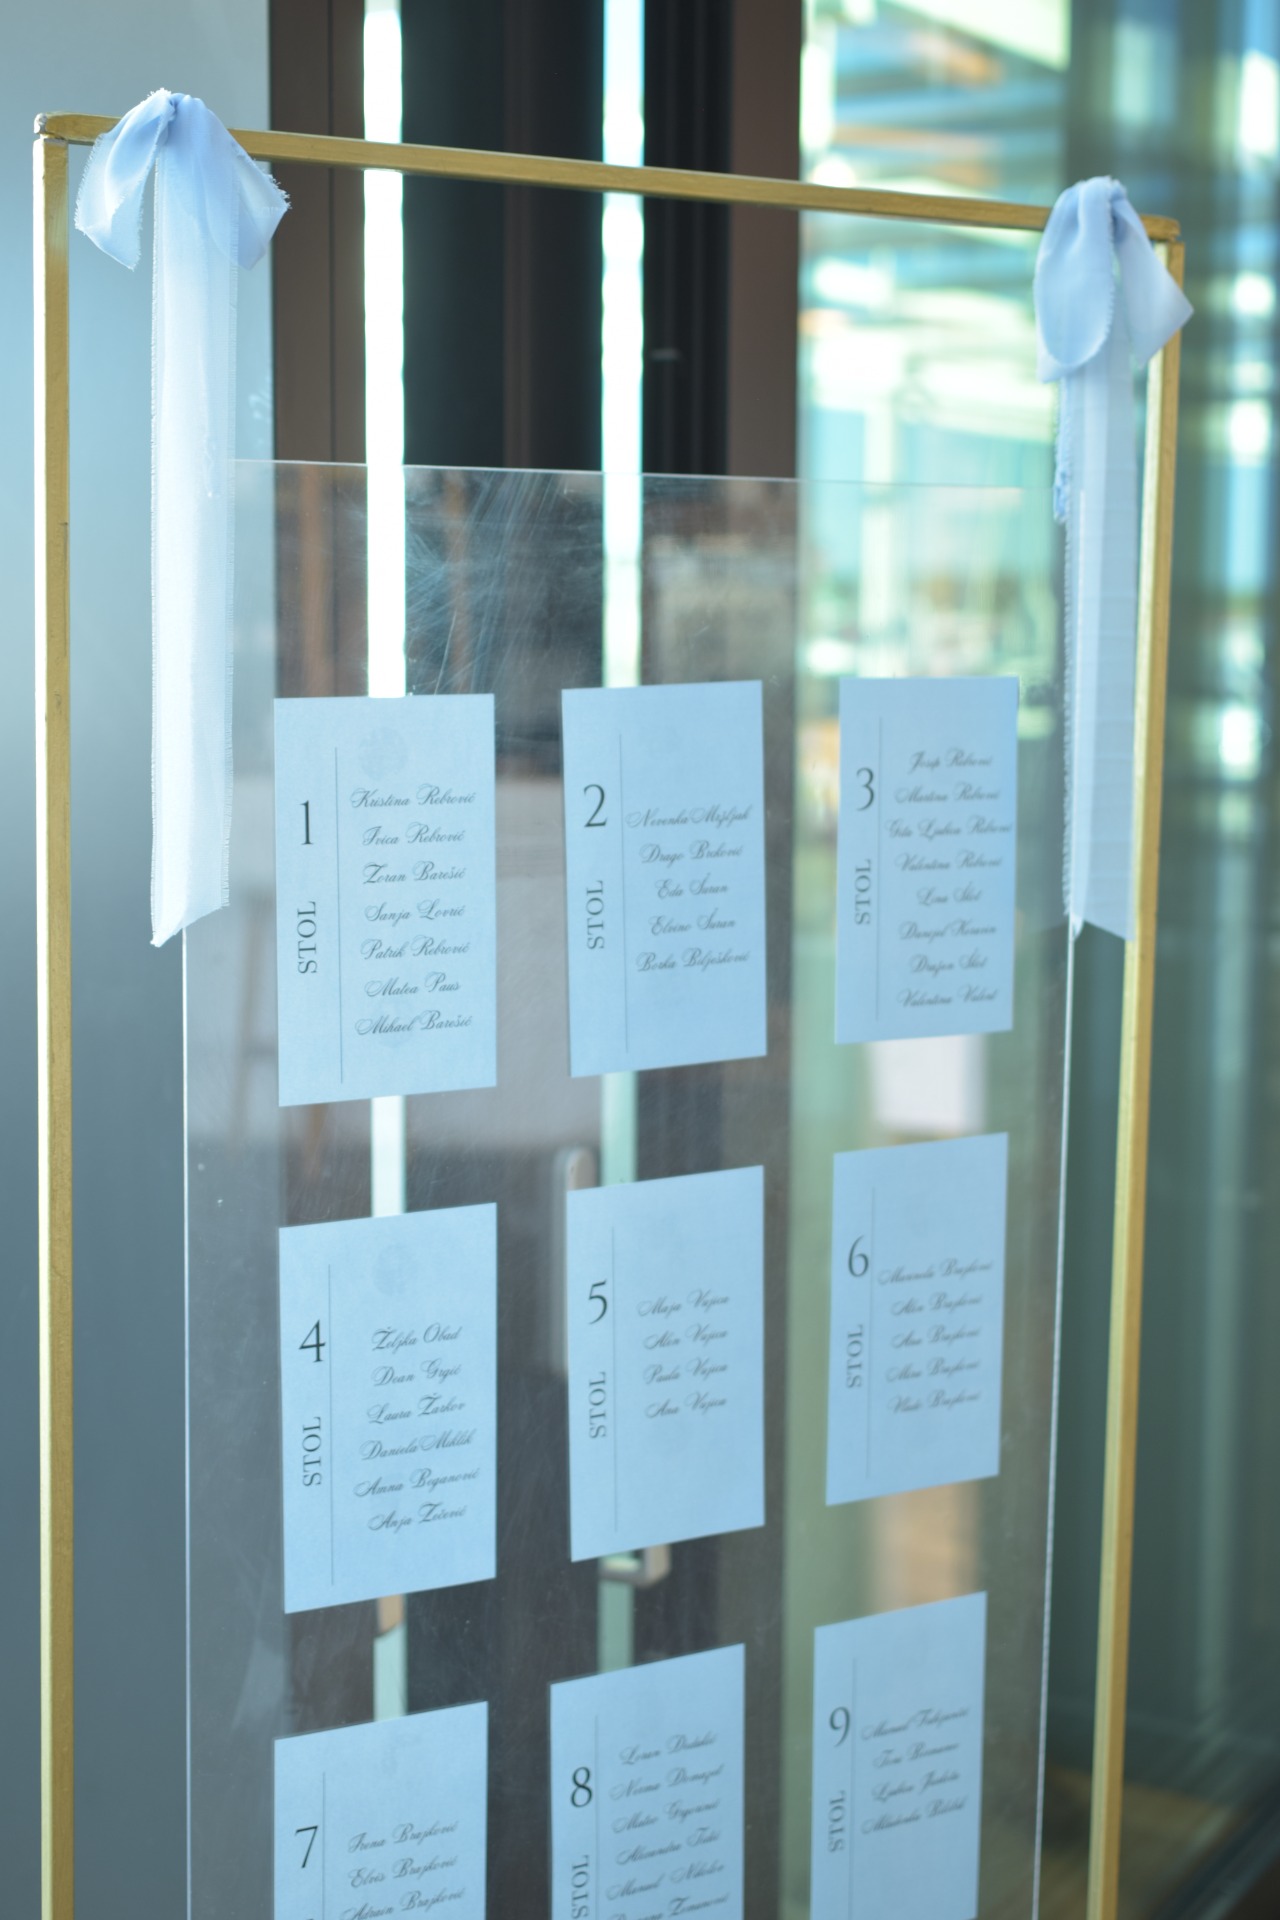 1
STOL
Kristina Rebrović
Ivica Rebrović
Zoran Barešić
Sanja Lovrić
Patrik Rebrović
Matea Paus
Mihael Barešić
2
STOL
Nevenka Mišljak
Drago Brković
Eda Šuran
Elvino Šuran
Borka Biljašković
3
STOL
Josip Rebrović
Martina Rebrović
Gita Ljubica Rebrović
Valentina Rebrović
Lina
Danijel
Dražan
Valentina
4
STOL
Željka Obad
Dean Grgić
Laura Žarkov
Daniela Miklik
Amna Beganović
Anja Zečević
5
STOL
Maja Vujica
Alen Vujica
Paula Vujica
Ana Vujica
6
STOL
Brajković
Alen Brajković
Ana Brajković
Mira Brajković
Vlado Brajković
7
Irena Brajković
Elvis Brajković
Adrian Brajković
8
STOL
Loran
Norma Domazet
Mateo
Alexandra
Manuel Nikolić
9
STOL
Manuel
Toni
Ljubica